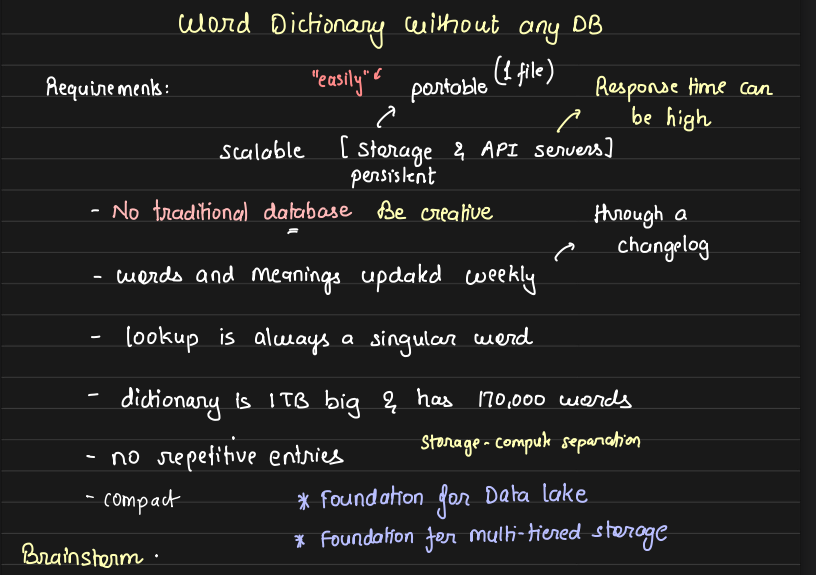 Word Dictionary without any DB
Requirements: "easily" portable (1 file) Response time can
be high
scalable [storage & API servers]
persistent
- No traditional database Be creative through a
changelog
- words and meanings updated weekly
- lookup is always a singular word
- dictionary is 1TB big & has 170,000 words
- no repetitive entries Storage-compute separation
- compact * Foundation for Data lake
* Foundation for multi-tiered storage
Brainstorm.